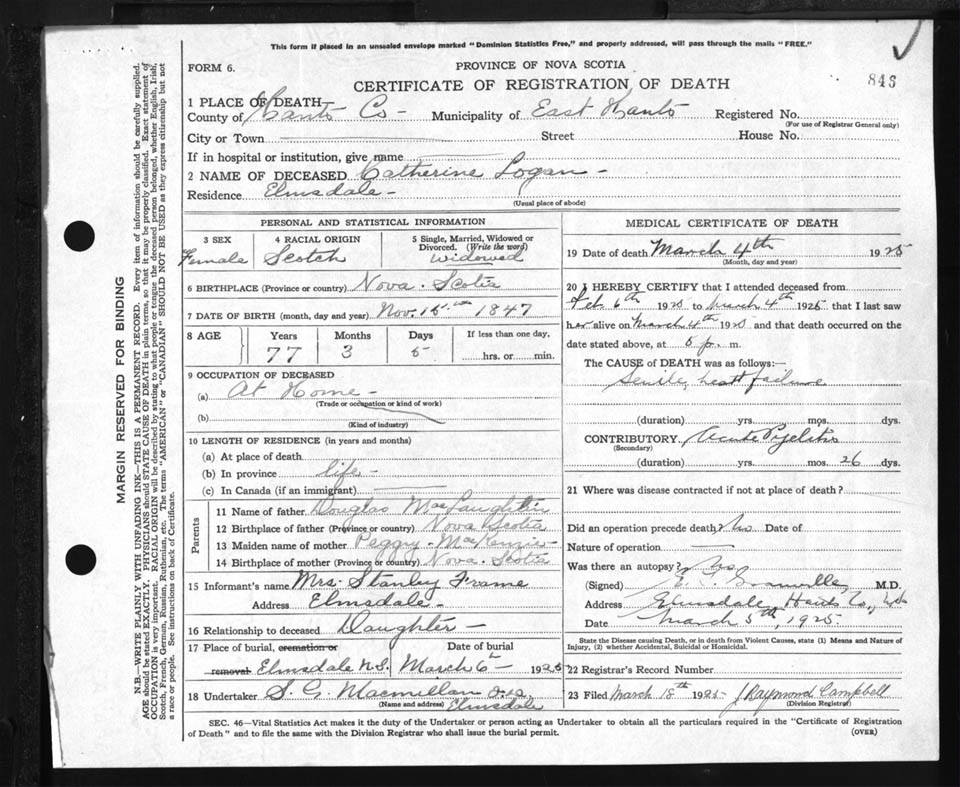 This form if placed in an unsealed envelope marked "Dominion Statistics Free," and properly addressed, will pass through the mails "FREE."
FORM 6.
PROVINCE OF NOVA SCOTIA
CERTIFICATE OF REGISTRATION OF DEATH
843
1 PLACE OF DEATH
County of Hants Co - Municipality of East Hants Registered No.
(For use of Registrar General only)
City or Town Street House No.
If in hospital or institution, give name
2 NAME OF DECEASED Catherine Logan -
Residence Elmsdale -
(Usual place of abode)
PERSONAL AND STATISTICAL INFORMATION
3 SEX
Female
4 RACIAL ORIGIN
Scotch
5 Single, Married, Widowed or
Divorced. (Write the word)
Widowed
6 BIRTHPLACE (Province or country) Nova Scotia
7 DATE OF BIRTH (month, day and year) Nov. 15 1847
8 AGE
Years
Months
Days
If less than one day,
77
3
5
hrs. or min.
9 OCCUPATION OF DECEASED
(a) At Home -
(Trade or occupation or kind of work)
(b)
(Kind of industry)
10 LENGTH OF RESIDENCE (in years and months)
(a) At place of death
(b) In province life -
(c) In Canada (if an immigrant)
Parents
11 Name of father Douglas MacLaughlin
12 Birthplace of father (Province or country) Nova Scotia
13 Maiden name of mother Peggy - MacKenzie
14 Birthplace of mother (Province or country) Nova Scotia
15 Informant's name Mrs. Stanley Frame
Address Elmsdale -
16 Relationship to deceased Daughter -
17 Place of burial, cremation or Date of burial
removal Elmsdale N.S. March 6 1925
18 Undertaker S. G. Macmillan
(Name and address) Elmsdale
MEDICAL CERTIFICATE OF DEATH
19 Date of death March 4th 1925
(Month, day and year)
20 I HEREBY CERTIFY that I attended deceased from
Feb 6th 1925 to March 4th 1925 that I last saw
her alive on March 4th 1925 and that death occurred on the
date stated above, at 5 p. m.
The CAUSE of DEATH was as follows:-
Senile heart failure
(duration) yrs. mos. dys.
CONTRIBUTORY Acute Pyelitis
(Secondary)
(duration) yrs. mos. 26 dys.
21 Where was disease contracted if not at place of death?
Did an operation precede death? No Date of
Nature of operation
Was there an autopsy?
(Signed) M.D.
Address Elmsdale, Hants Co., N.S.
Date March 5th, 1925.
State the Disease causing Death, or in death from Violent Causes, state (1) Means and Nature of
Injury, (2) whether Accidental, Suicidal or Homicidal.
22 Registrar's Record Number
23 Filed March 18th 1925 J Raymond Campbell
(Division Registrar)
SEC. 46-Vital Statistics Act makes it the duty of the Undertaker or person acting as Undertaker to obtain all the particulars required in the "Certificate of Registration
of Death" and to file the same with the Division Registrar who shall issue the burial permit.
(OVER)
MARGIN RESERVED FOR BINDING
N.B.-WRITE PLAINLY WITH UNFADING INK-THIS IS A PERMANENT RECORD. Every item of information should be carefully supplied.
AGE should be stated EXACTLY. PHYSICIANS should STATE CAUSE OF DEATH in plain terms, so that it may be properly classified. Exact statement of
OCCUPATION is very important. RACIAL ORIGIN will be described by stating to what people or tongue the deceased person belonged, whether English, Irish,
Scotch, French, German, Russian, Ruthenian, etc. The terms "AMERICAN" or "CANADIAN" SHOULD NOT BE USED as they express citizenship but not
a race or people. See instructions on back of Certificate.